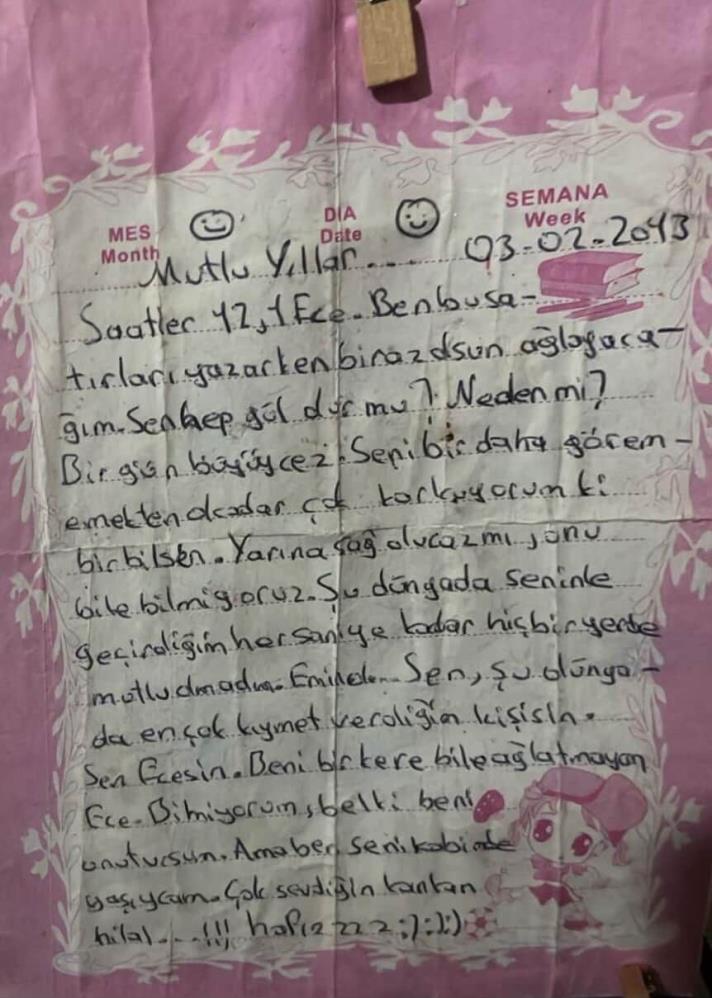 MES DIA SEMANA
Month Date Week
Mutlu Yıllar.... 03-02-2013
Saatler 12,1 Ece. Ben bu sa-
tırları yazarken biraz dsun ağlayaca-
ğım. Sen hep gül dur mu? Neden mi?
Bir gün büyüycez. Seni bir daha görem-
emekten okadar çok korkuyorum ki
bir bilsen. Yarına sağ olucazmı, onu
bile bilmiyoruz. Şu dünyada seninle
geçirdiğim her saniye kadar hiçbir yerde
mutlu olmadım. Sen, şu dünya-
da en çok kıymet verdiğim kişisin.
Sen Ecesin. Beni bir kere bile ağlatmayan
Ece. Bilmiyorum, belki beni
unutursun. Ama ben seni kabimde
yaşıycam. Çok sevdiğin kankan
hilal....!!! :):):)